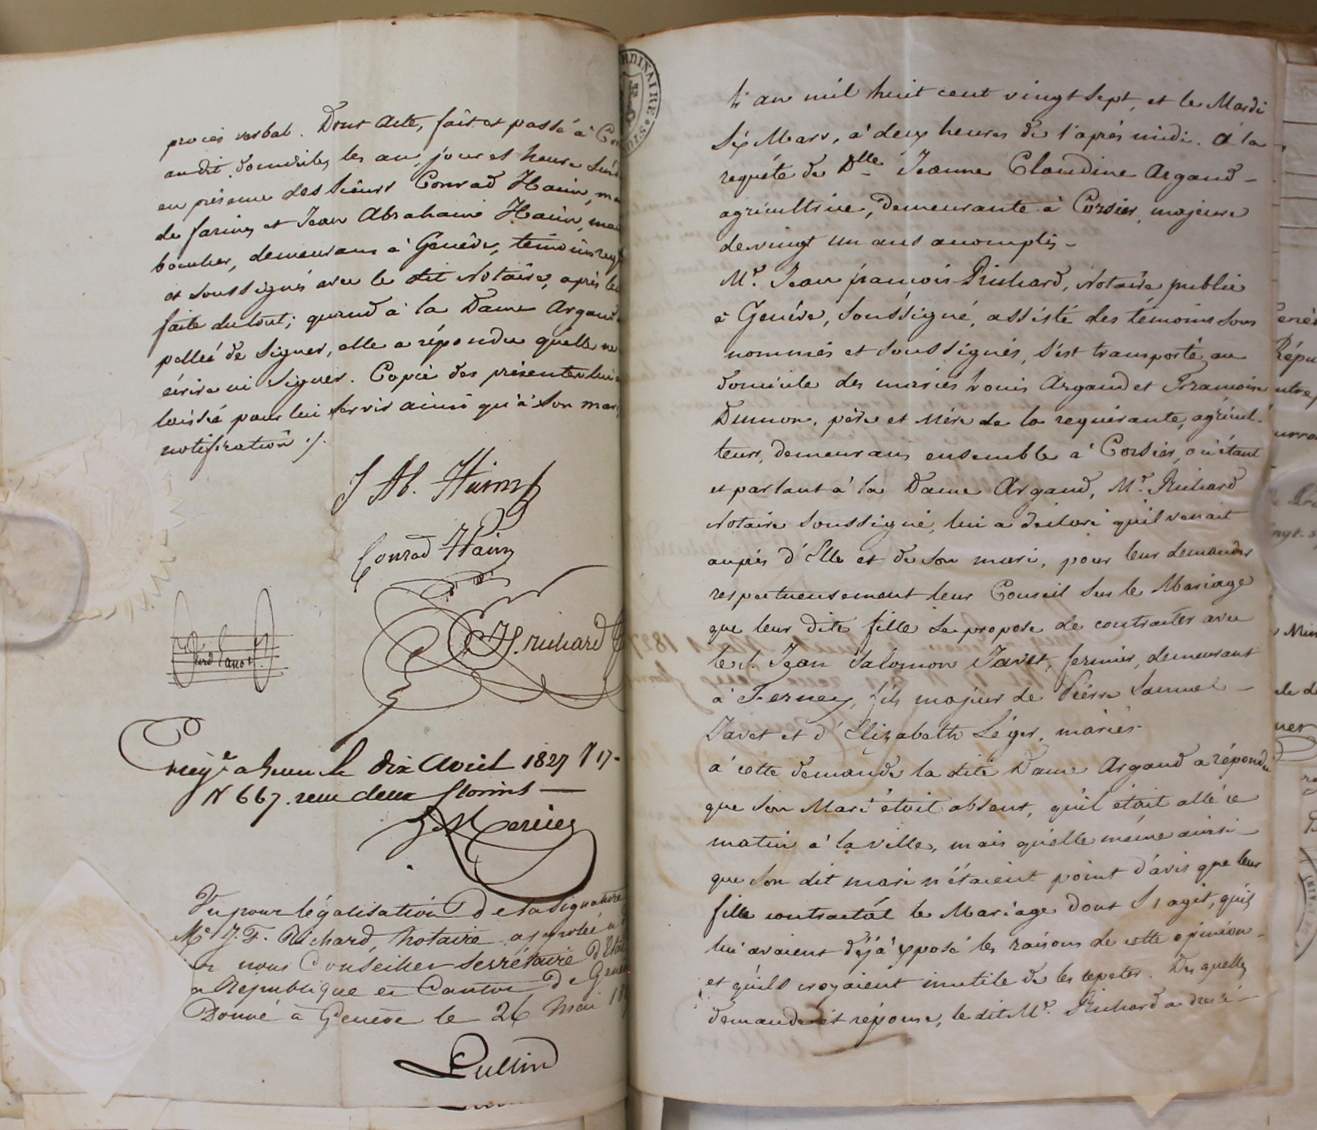 procès verbal. Dont acte, fait et passé à
au dit domicile, les an, jour et heure
en présence des Sieurs Conrad Haim,
de farines et Jean Abraham Haim,
boucher, demeurans à Genève, témoins
et soussignés avec le dit Notaire, après
faite du tout; quand à la Dame Argand
de signer, elle a répondu quelle ne
écrire ni signer. Copie des présentes lui
laissée pour lui servir ainsi qu'à son mari
notification ./.
J Ab. Haim
Conrad Haim
J. H. richard
a Genève le dix Avril 1827
N 667. reçu deux florins
Vu pour légalisation de la signature
Me. J. F. Richard, Notaire apposée
nous Conseiller Secrétaire d'Etat
République et Canton de Genève
Donné à Genève le 26 Mai
Lullin
RDINAIRE
L'an mil huit cent vingt sept, et le Mardi
Six Mars, à deux heures de l'après midi. à la
requête de Dlle. Jeanne Claudine Argand
agricultrice, demeurante à Corsier, majeure
de vingt un ans accomplis
Mr. Jean françois Richard, Notaire public
à Genève, soussigné, assisté des témoins sous
nommés et soussignés, s'est transporté au
domicile des mariés Louis Argand et Françoise
Dunon, père et Mère de la requérante, agricul-
teurs, demeurans ensemble à Corsier, où étant
et parlant à la Dame Argand, Mr. Richard
Notaire soussigné, lui a déclaré qu'il venait
auprès d'Elle et de son mari, pour leur demander
respectueusement leur Conseil sur le Mariage
que leur dite fille se propose de contracter avec
le Sr. Jean Salomon Javet, fermier, demeurant
à Ferney, fils majeur de Pierre Samuel
Javet et d'Elizabeth Léger, mariés.
à cette demande la dite Dame Argand a répondu
que son Mari était absent, qu'il était allé ce
matin à la ville, mais qu'elle même ainsi
que son dit mari n'étaient point d'avis que leur
fille contractât le Mariage dont s'agit, qu'ils
lui avaient déjà exposé les raisons de cette opinion
et qu'ils croyaient inutile de les repeter. Des quelles
demande et réponse, le dit Mr. Richard a dressé